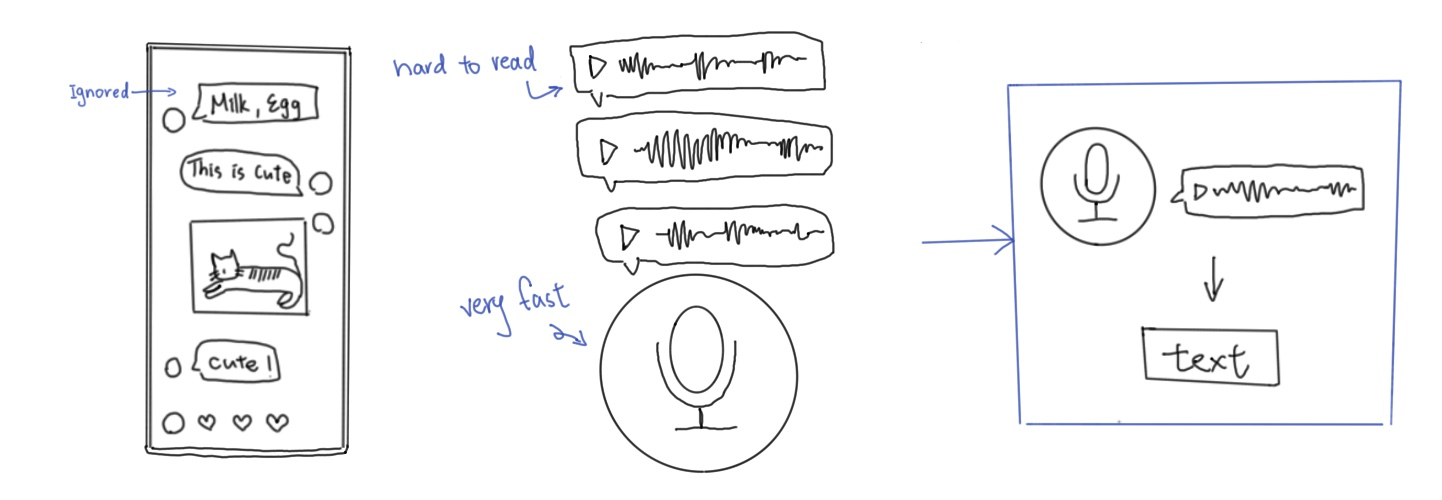 Ignored
Milk, Egg
This is Cute
cute!
hard to read
very fast
text